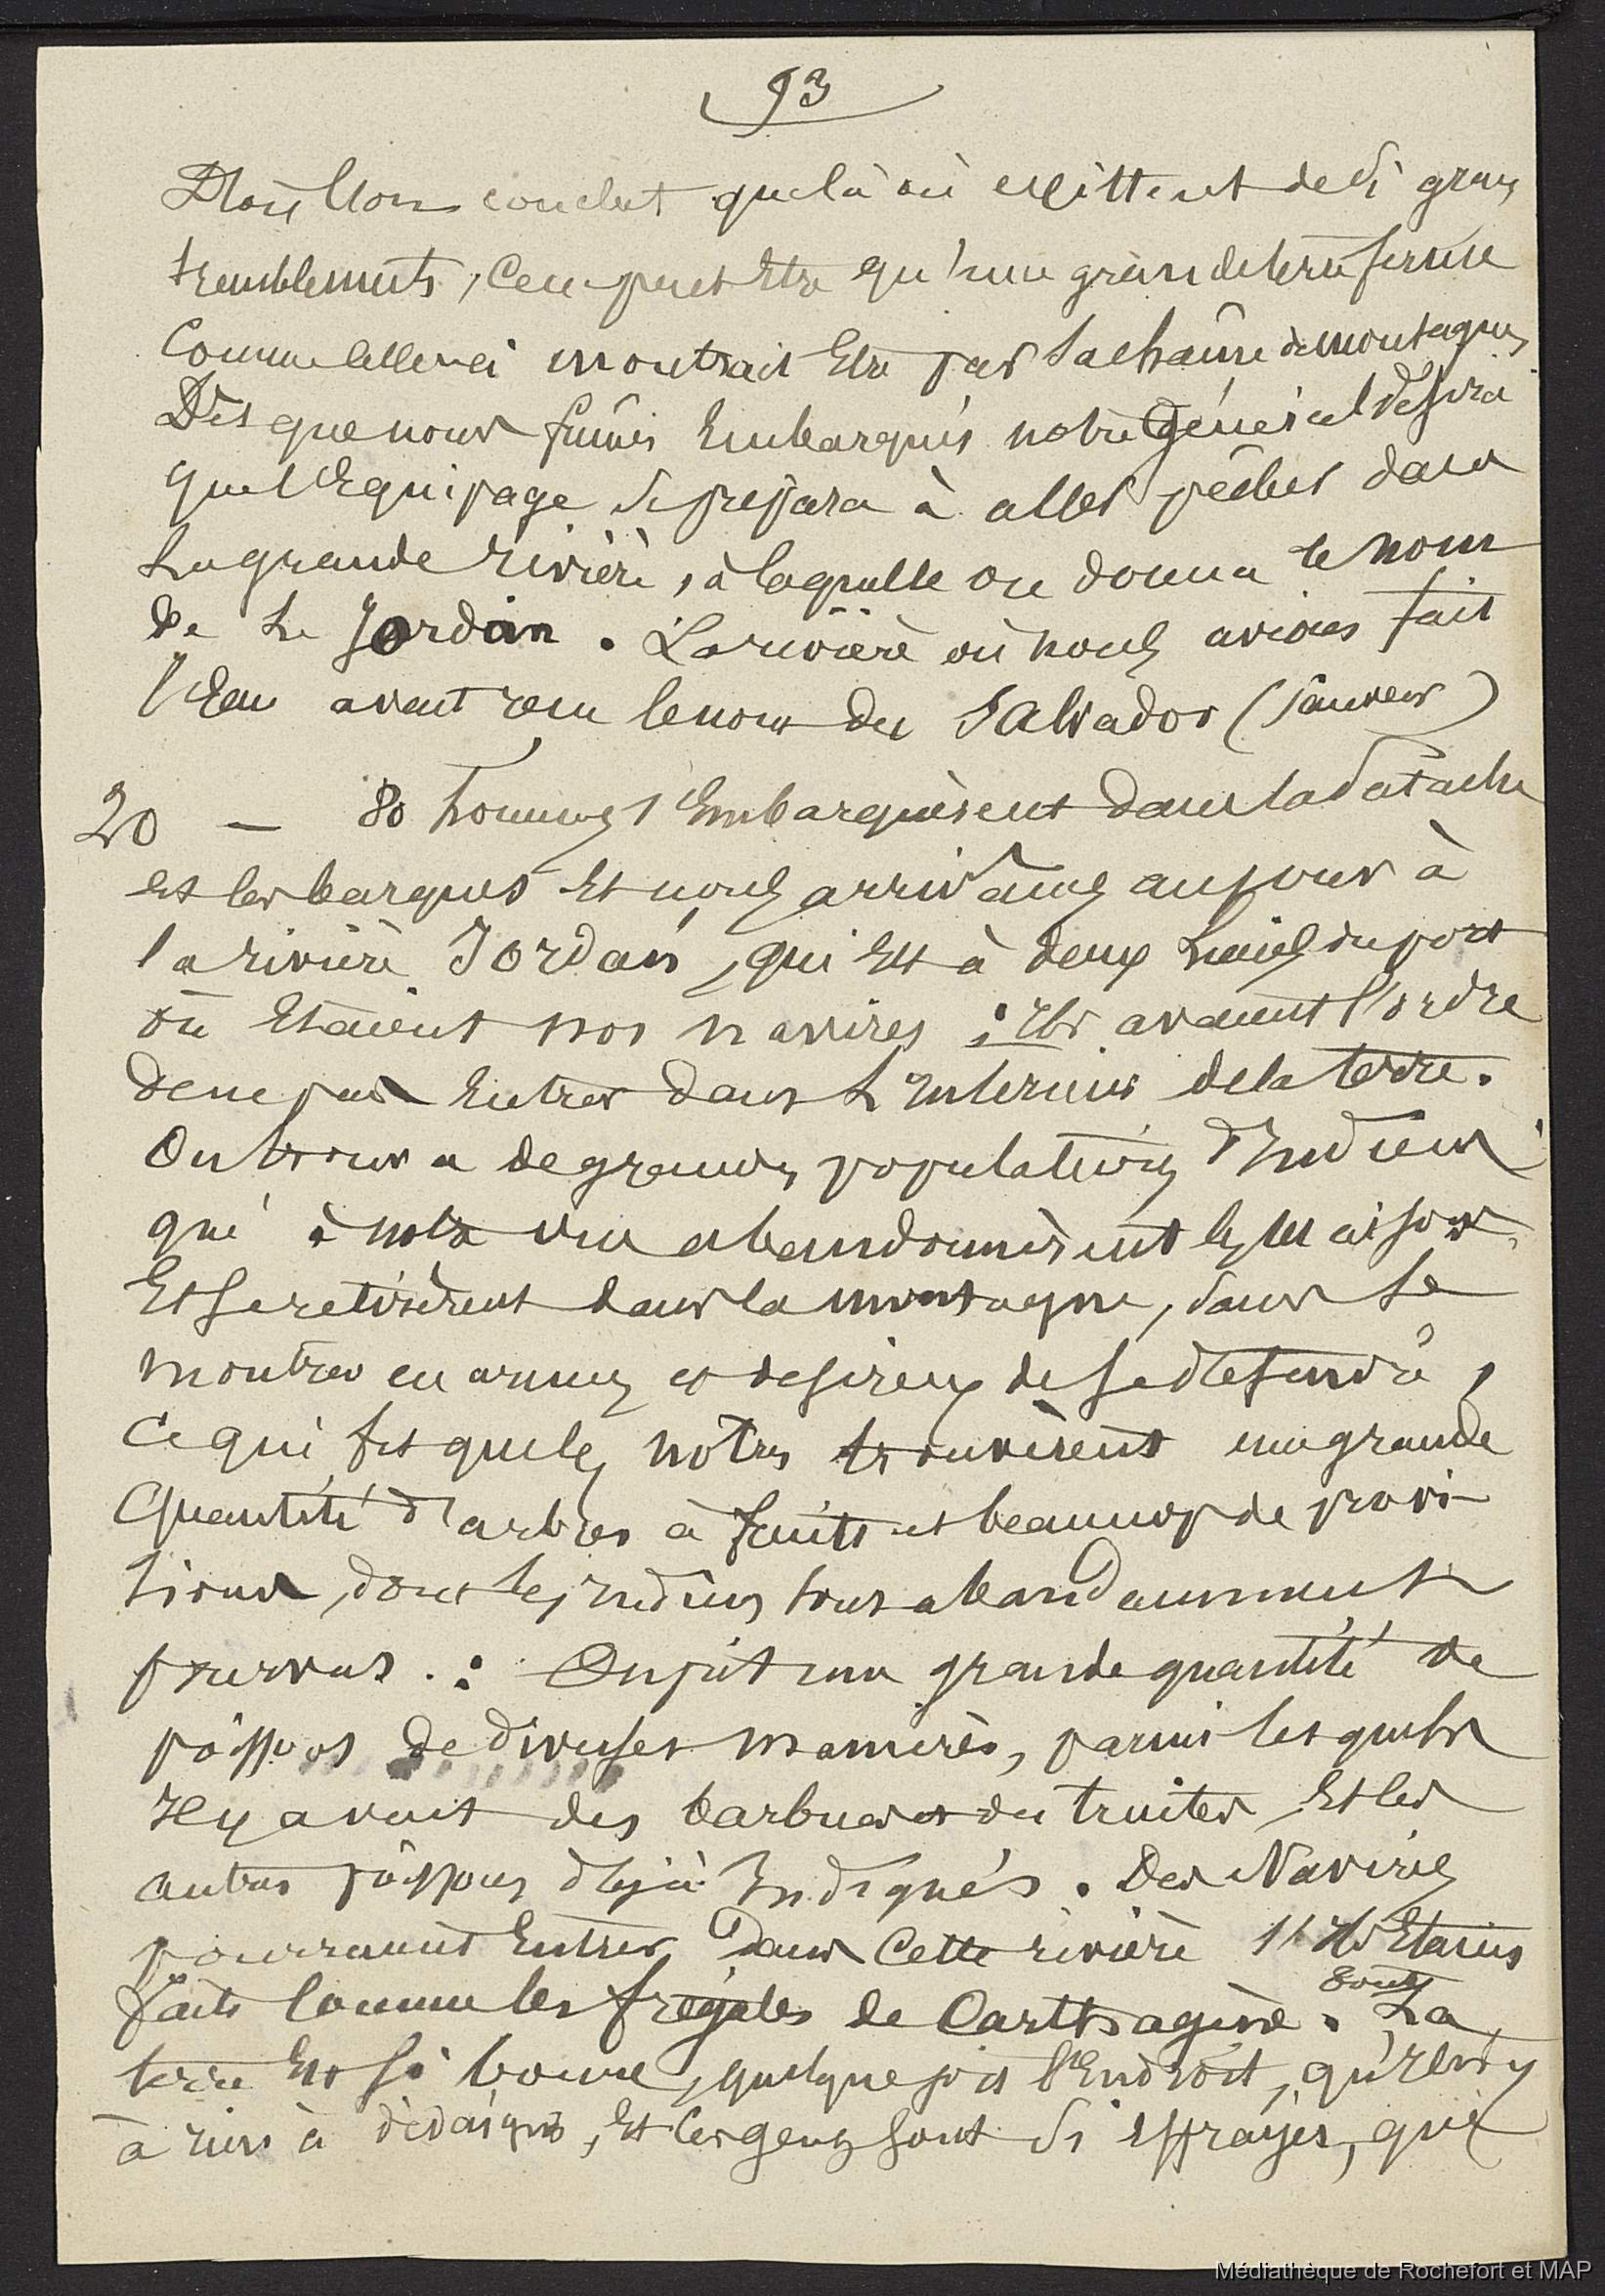 93
D'où l'on conclut que là où existent de si grans
tremblements, ce ne peut être qu'une grande terre ferme
comme celle-ci montrait être par sa chaîne de montagnes
Dès que nous fûmes Embarqués notre Général désira
que l'Equipage se prépara à aller pêcher dans
la grande rivière, à laquelle on donna le nom
de Le Jordan. La rivière où nous avions fait
l'Eau avait reçu le nom du Salvador (Sauveur)
20 — 80 hommes s'Embarquèrent dans la Patache
et les barques et nous arrivâmes au jour à
la rivière Jordan, qui est à deux lieues du port
où Etaient nos navires ; Ils avaient l'ordre
de ne pas Entrer dans L'Interieur de la terre.
On trouva de grandes populations d'Indiens
qui à notre vue abandonnèrent les Maisons
Et se retirèrent dans la montagne, sans se
montrer en armes et desireux de se defendre,
Ce qui fit que les notres trouvèrent une grande
Quantité d'arbres à fruits et beaucoup de provi-
sions, dont les Indiens sont abondamment
pourvus. : On prit une grande quantité de
poissons de diverses manières, parmi lesquels
Il y avait des barbues et des truites Et les
autres poissons déjà Indiqués. Des Navires
pourraient Entrer Dans cette rivière s'Ils Etaient
faits comme les frégates de Carthagène. La
terre Est si bonne, quelque soit l'Endroit, qu'Il n'y
a rien à dédaigner, Et les gens sont si effrayés, que
Médiathèque de Rochefort et MAP